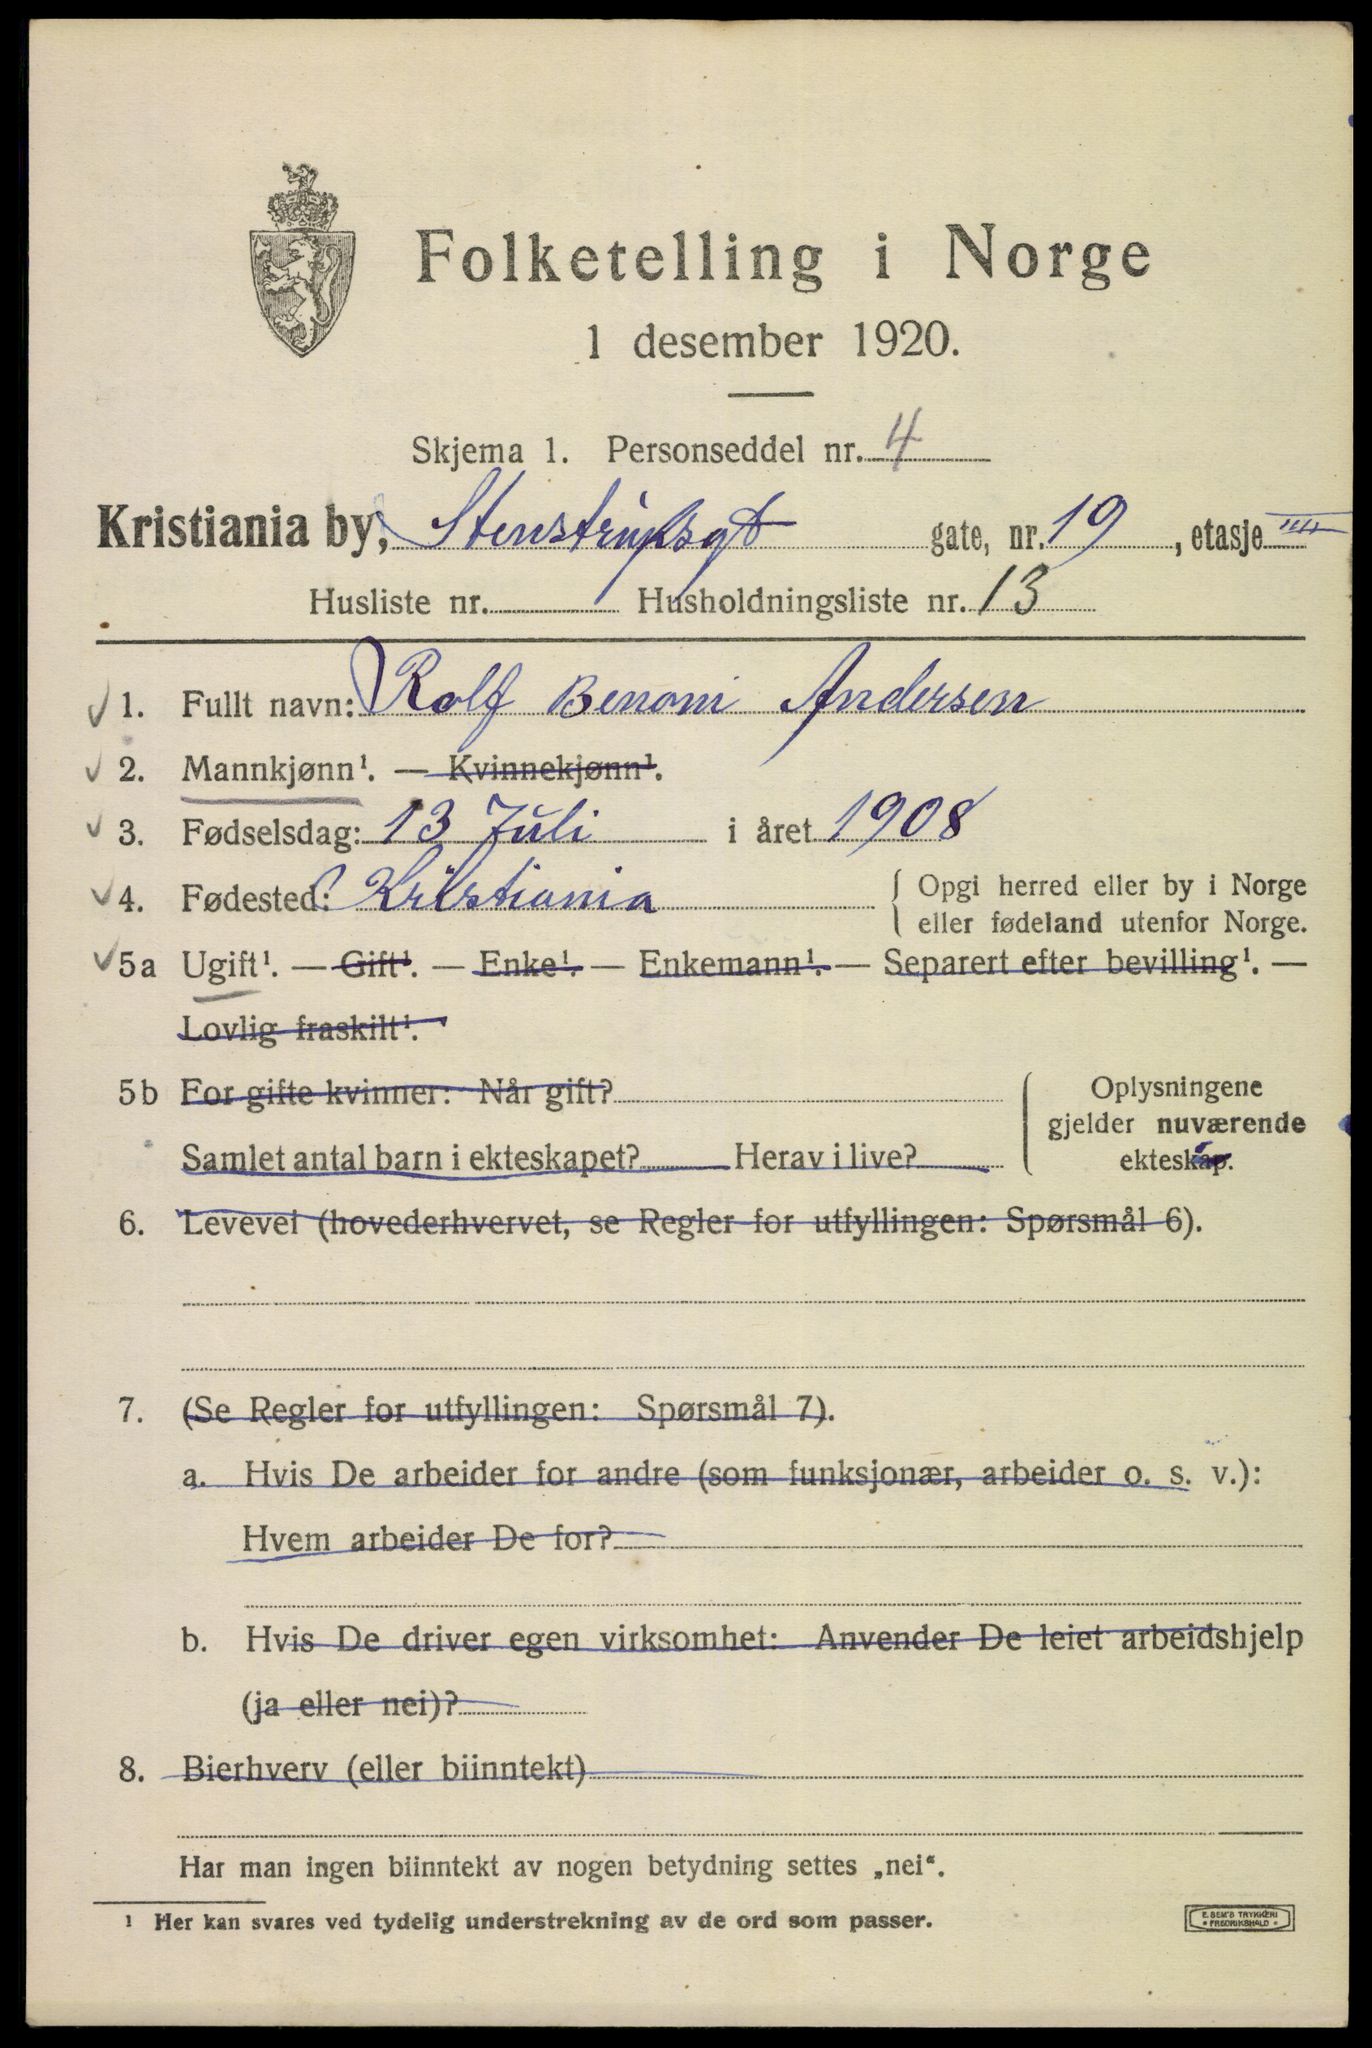 Folketelling i Norge
1 desember 1920.
Skjema 1. Personseddel nr. 4
Kristiania by, Stenstrupsgt gate, nr. 19, etasje IIII
Husliste nr. Husholdningsliste nr. 13
1. Fullt navn: Rolf Benoni Andersen
2. Mannkjønn¹. — Kvinnekjønn¹.
3. Fødselsdag: 13 Juli i året 1908
4. Fødested: Kristiania { Opgi herred eller by i Norge
eller fødeland utenfor Norge.
5a Ugift¹. — Gift¹. — Enke¹. — Enkemann¹. — Separert efter bevilling¹. —
Lovlig fraskilt¹.
5b For gifte kvinner: Når gift? { Oplysningene
gjelder nuværende
Samlet antal barn i ekteskapet? Herav i live? ekteskap.
6. Levevei (hovederhvervet, se Regler for utfyllingen: Spørsmål 6).
7. (Se Regler for utfyllingen: Spørsmål 7).
a. Hvis De arbeider for andre (som funksjonær, arbeider o. s. v.):
Hvem arbeider De for?
b. Hvis De driver egen virksomhet: Anvender De leiet arbeidshjelp
(ja eller nei)?
8. Bierhverv (eller biinntekt)
Har man ingen biinntekt av nogen betydning settes „nei“.
¹ Her kan svares ved tydelig understrekning av de ord som passer.
E. SEM'S TRYKKERI
• FREDRIKSHALD •